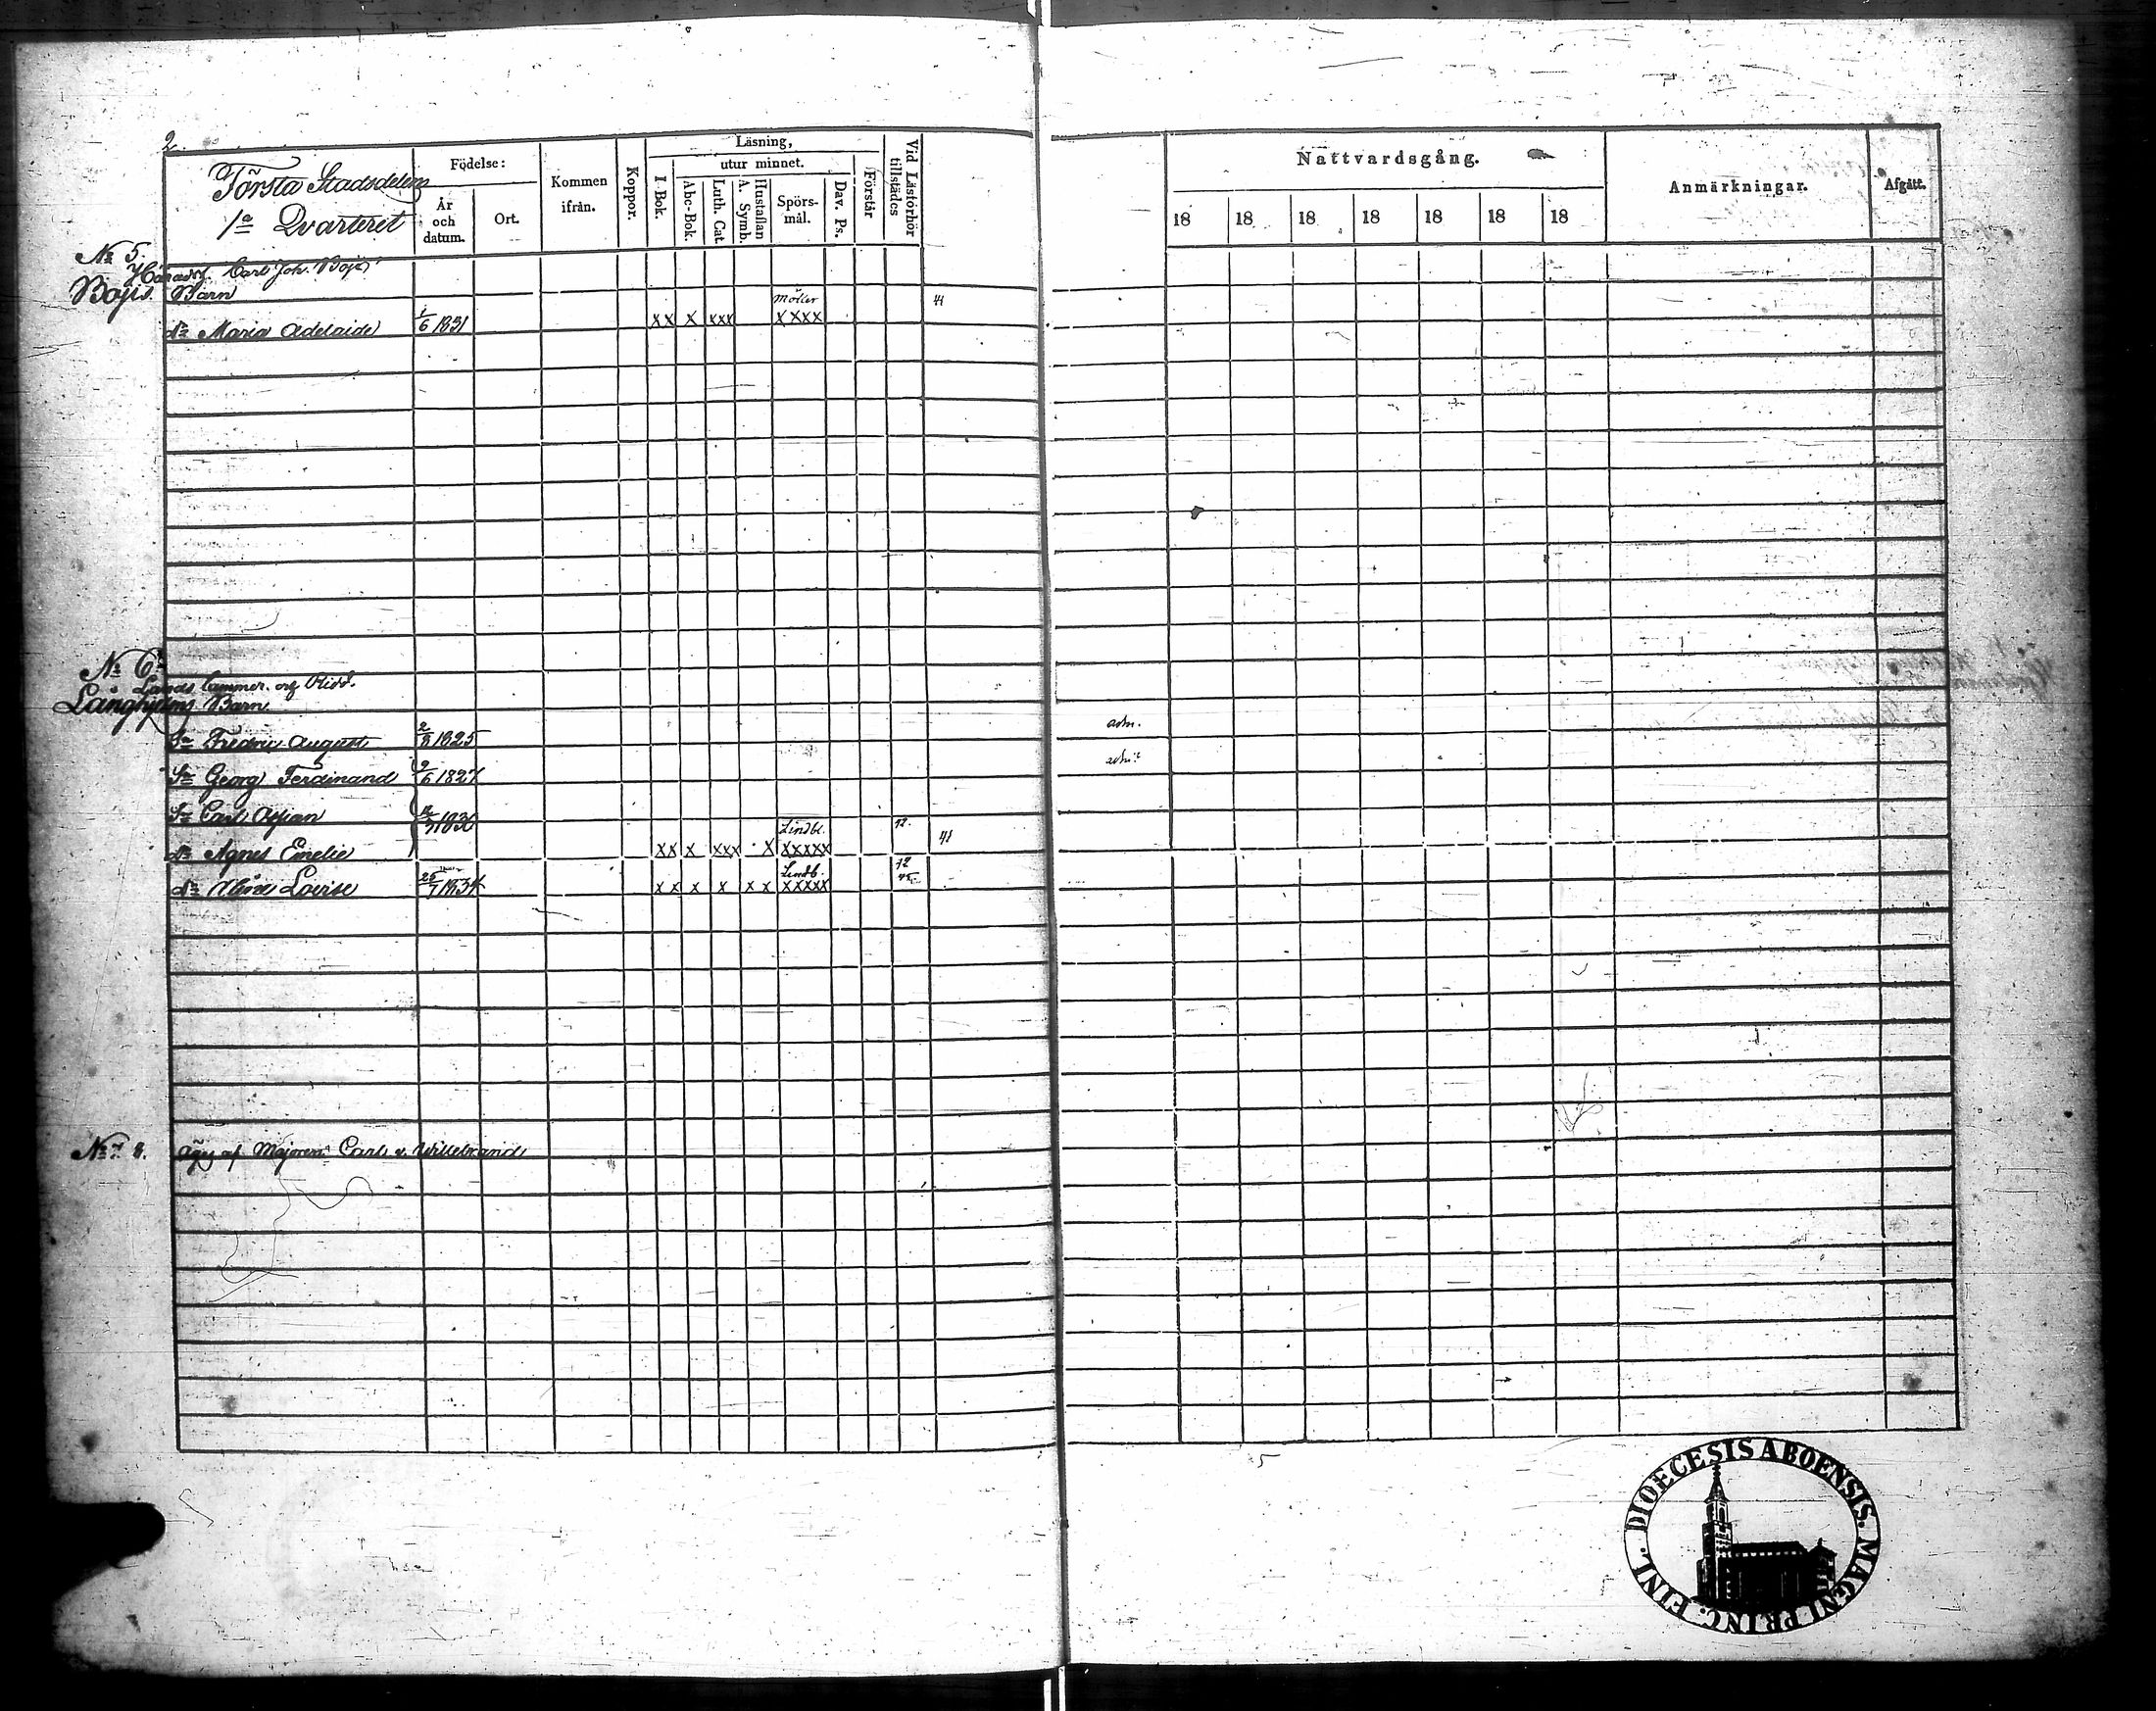 2
Första Stadsdelen
1a Qvarteret
Födelse:
År och datum.
Ort.
Kommen ifrån.
Koppor.
Läsning,
I Bok.
utur minnet.
Abc-Bok.
Luth. Cat.
Hustaflan A. Symb.
Spörsmål.
Dav. Ps.
Förstår
Vid Läsförhör tillstädes
Nattvardsgång.
18 18 18 18 18 18 18
Anmärkningar.
Afgått.
No 5.
Carl Joh. Boje
Bojes Barn
Möller
dr Maria Adelaide 1/6 1831 xx x xxx xxxx 41
No 6
Lands Cammer. och Ridd.
Långhjelms Barn.
Sn Fredric August 2/8 1825 adm.
Sn Georg Ferdinand 9/6 1827 adm.
Sn Carl
Lindbl. 12.
dr Agnes Emelie xx x xxx x xxxxx 41
Lindb. 12
dr Lovise 25/7 1834 xx x x xx xxxxx 45.
No 7. 8. Äges af Majoren Carl v. Willebrand
DIOECESIS ABOENSIS. MAGNI PRINC. FINL.